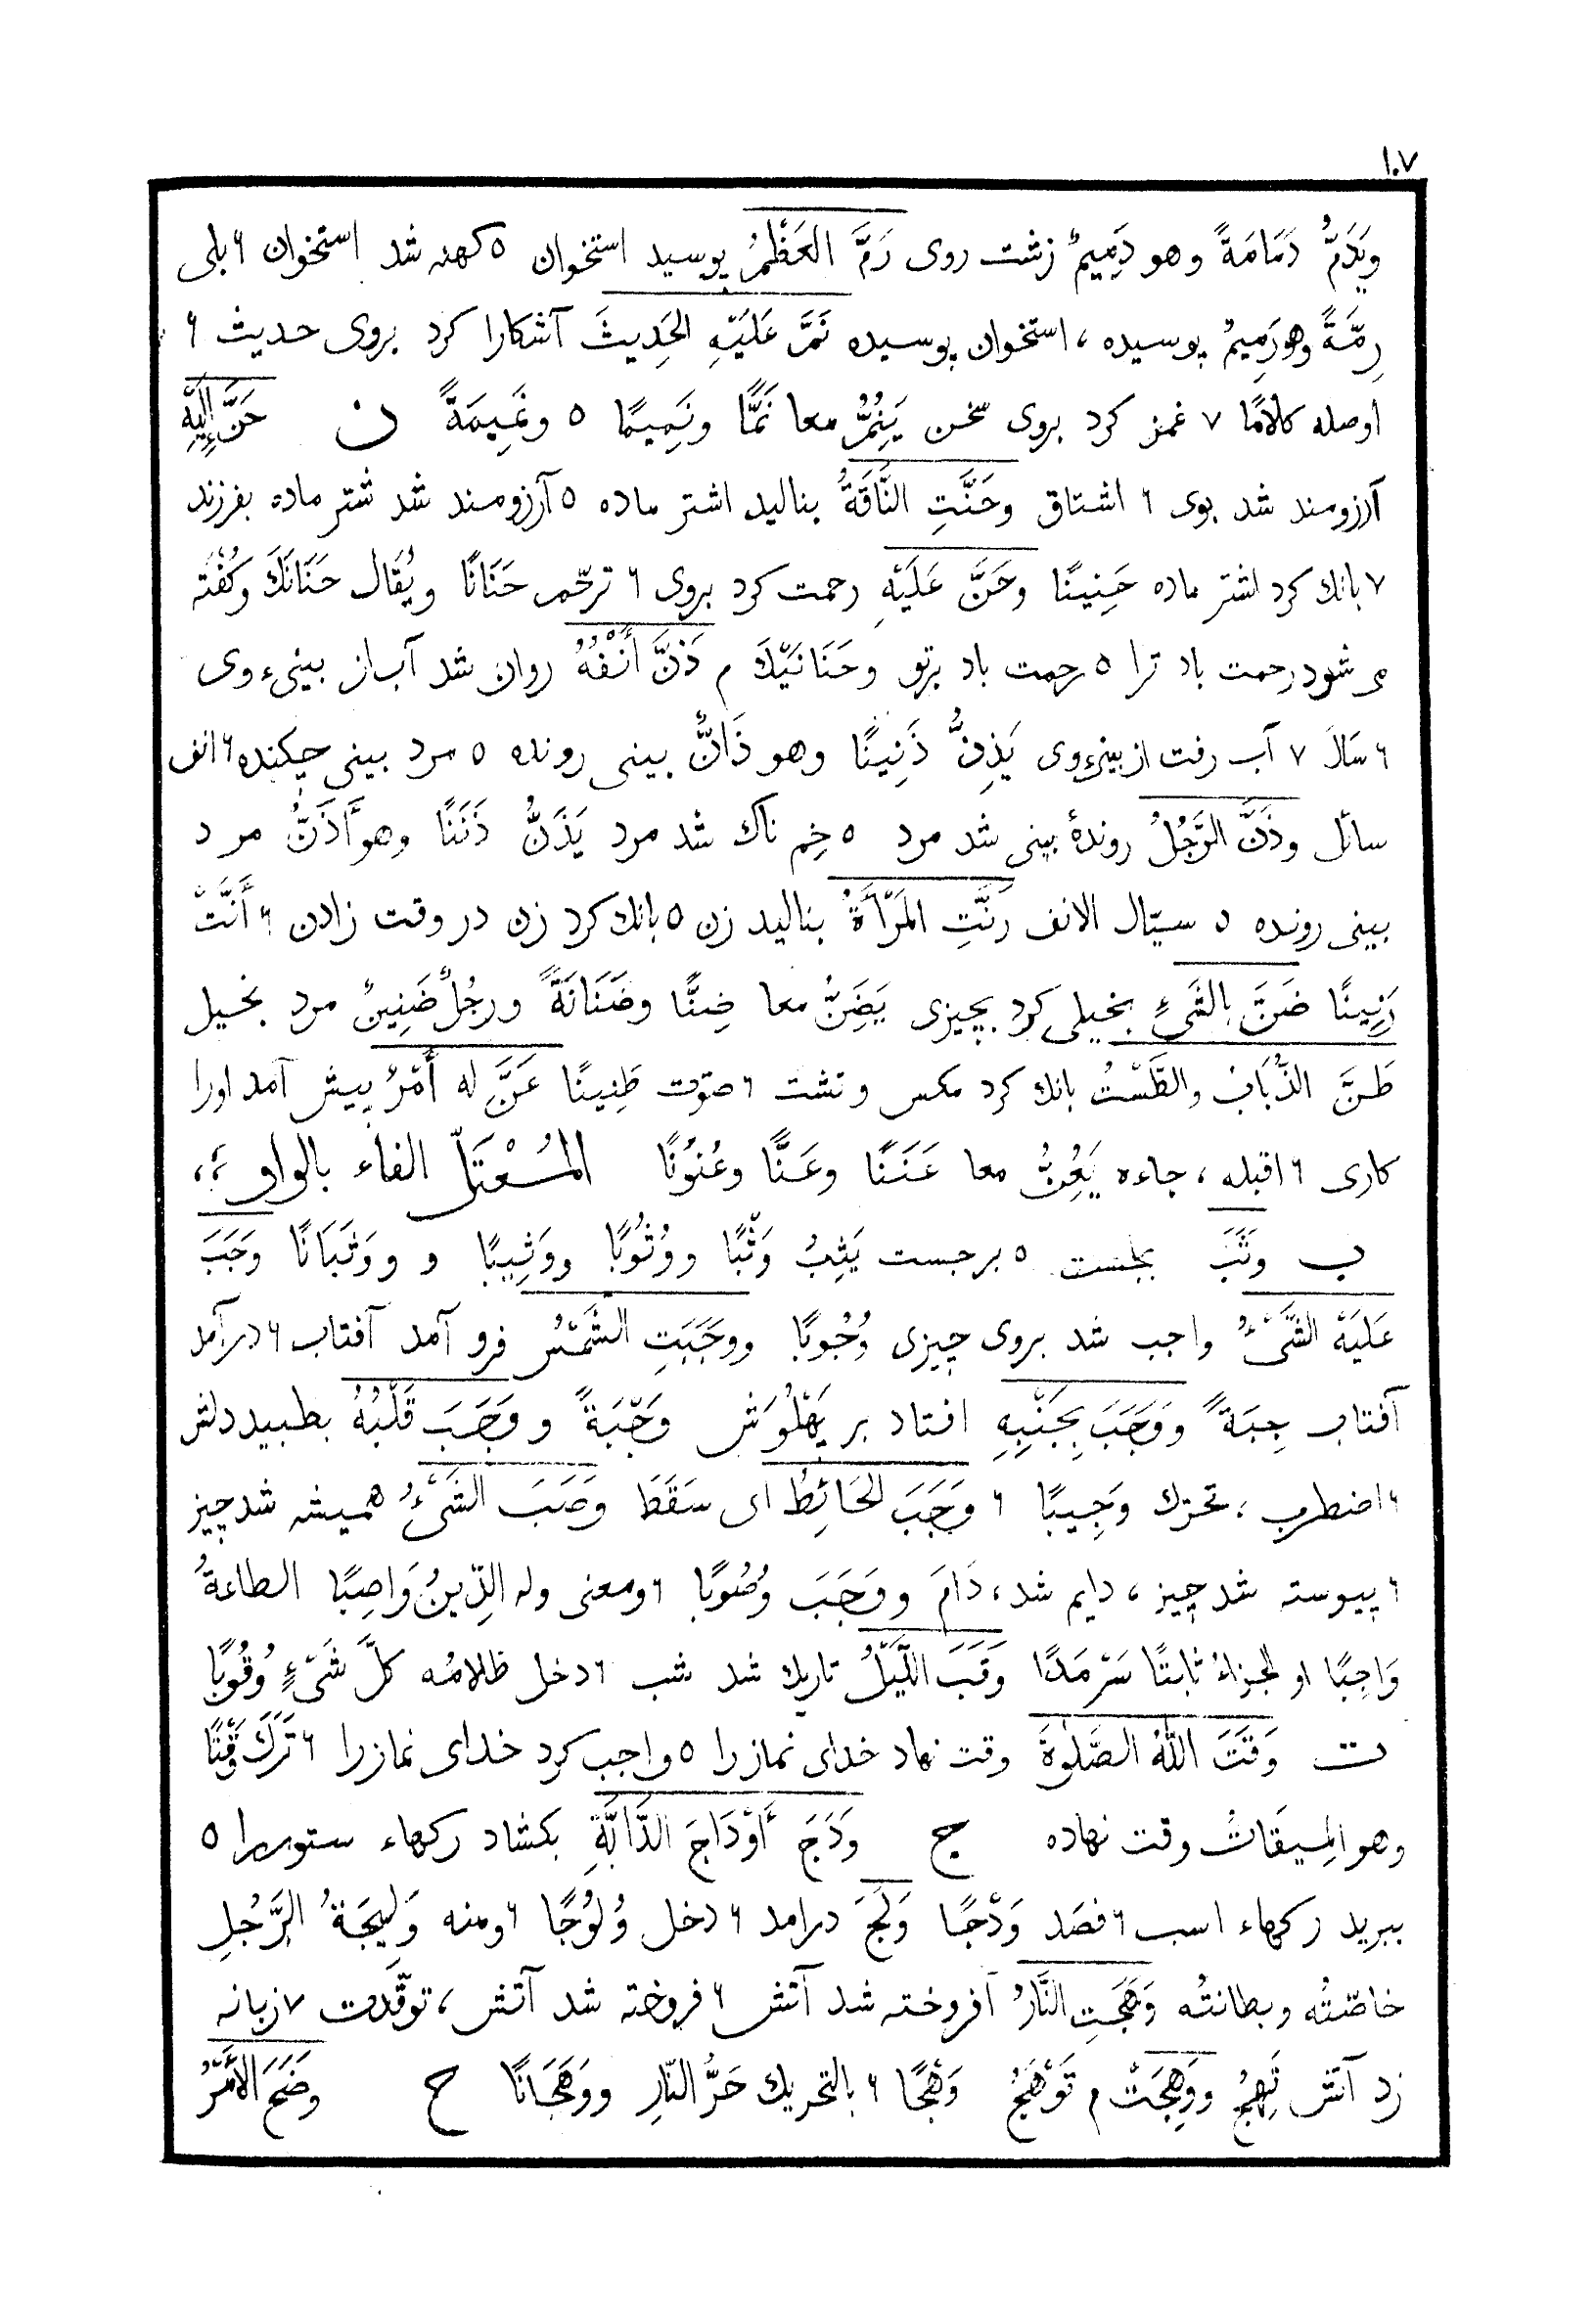 ١٠٧
وَيَدَمُّ دَمَامَةً وهو دَمِيمٌ زشت روى رَمَّ العَظْمُ پوسيد استخوان ٥ كهنه شد استخوان ٦ بلى
رِمَّةً وهو رَمِيمٌ پوسيده ، استخوان پوسيده نَمَّ عَلَيْهِ الحَدِيثَ آشكارا كرد بروى حديث ٦
اوصله كلامًا ٧ غمز كرد بروى سخن يَنِمُّ معا نَمًّا ونَمِيمًا ٥ ونَمِيمَةً ن حَنَّ إِلَيْهِ
آرزومند شد بوى ٦ اشتاق وحَنَّتِ النَّاقَةُ بناليد اشتر ماده ٥ آرزومند شد شتر ماده بفرزند
٧ بانك كرد اشتر ماده حَنِينًا وحَنَّ عَلَيْهِ رحمت كرد بروى ٦ ترحّم حَنَانًا ويُقَال حَنَانَكَ وكُفْتَه
مى شود رحمت باد ترا ٥ رحمت باد برتو وحَنَانَيْكَ م ذَنَّ أَنْفُهُ روان شد آب از بينىء وى
٦ سَالَ ٧ آب رفت از بينىء وى يَذِنُّ ذَنِينًا وهو ذَانٌّ بينى رونده ٥ مرد بينى چكنده ٦ انف
سائل وذَنَّ الرَّجُلُ روندهٔ بينى شد مرد ٥ خِم ناك شد مرد يَذَنُّ ذَنَنًا وهو أَذَنُّ مرد
بينى رونده ٥ سيّال الانف رَنَّتِ المَرْأَةُ بناليد زن ٥ بانك كرد زن در وقت زادن ٦ أَنَّتْ
رَنِينًا ضَنَّ بِالشَّىْءِ بخيلى كرد بچيزى يَضِنُّ معا ضِنًّا وضَنَانَةً ورجُلٌ ضَنِينٌ مرد بخيل
طَنَّ الذُّبَابُ والطَّسْتُ بانك كرد مكس وتشت ٦ صوّت طَنِينًا عَنَّ له أَمْرٌ پيش آمد اورا
كارى ٦ اقبله ، جاءه يَعُِنُّ معا عَنَنًا وعَنًّا وعُنُونًا المُعْتَلّ الفاء بالواو ،،
ب وثَبَ بجست ٥ برجست يَثِبُ وَثْبًا ووُثُوبًا ووَثِيبًا و ووَثَبَانًا وَجَبَ
عَلَيْهِ الشَّىْءُ واجب شد بروى چيزى وُجُوبًا ووجَبَتِ الشَّمْسُ فرو آمد آفتاب ٦ درآمد
آفتاب جِبَةً ووَجَبَ بِجَنْبِهِ افتاد بر پَهْلُوَش وَجْبَةً و وَجَبَ قَلْبُهُ بطبيد دلش
٦ اضطرب ، تحرّك وَجِيبًا ٦ وَجَبَ الحَائِطُ اى سَقَطَ وَصَبَ الشَّىْءُ هميشه شد چيز
٦ پيوسته شد چيز ، دايم شد ، دَامَ ووَجَبَ وُصُوبًا ٦ ومعنى وله الدِّينُ وَاصِبًا الطاعةُ
وَاجِبًا او الجزاءُ ثابتًا سَرْمَدًا وَقَبَ اللَّيْلُ تاريك شد شب ٦ دخل ظلامُه كلَّ شَىْءٍ وُقُوبًا
ت وَقَتَ اللّٰهُ الصَّلٰوةَ وقت نهاد خداى نماز را ٥ واجب كرد خداى نماز را ٦ تَرَكَ وَقْتًا
وهو المِيقَاتُ وقت نهاده ج وَدَجَ أَوْدَاجَ الدَّابَّةِ بكشاد ركهاء ستوررا ٥
ببريد ركهاء اسب ٦ فصَد وَدْجًا وَلَجَ درامد ٦ دخل وُلُوجًا ٦ ومنه وَلِيجَةُ الرَّجُلِ
خاصّتُه وبطانتُه وَهَجَتِ النَّارُ افروخته شد آتش ٦ فروخته شد آتش ، توقّدت ٧ زبانه
زد آتش تَهِجُ ووَهِجَتْ م تَوْهَجُ وَهْجًا ٦ بالتحريك حَرُّ النّارِ ووَهَجَانًا ح وضَحَ الأَمْرُ